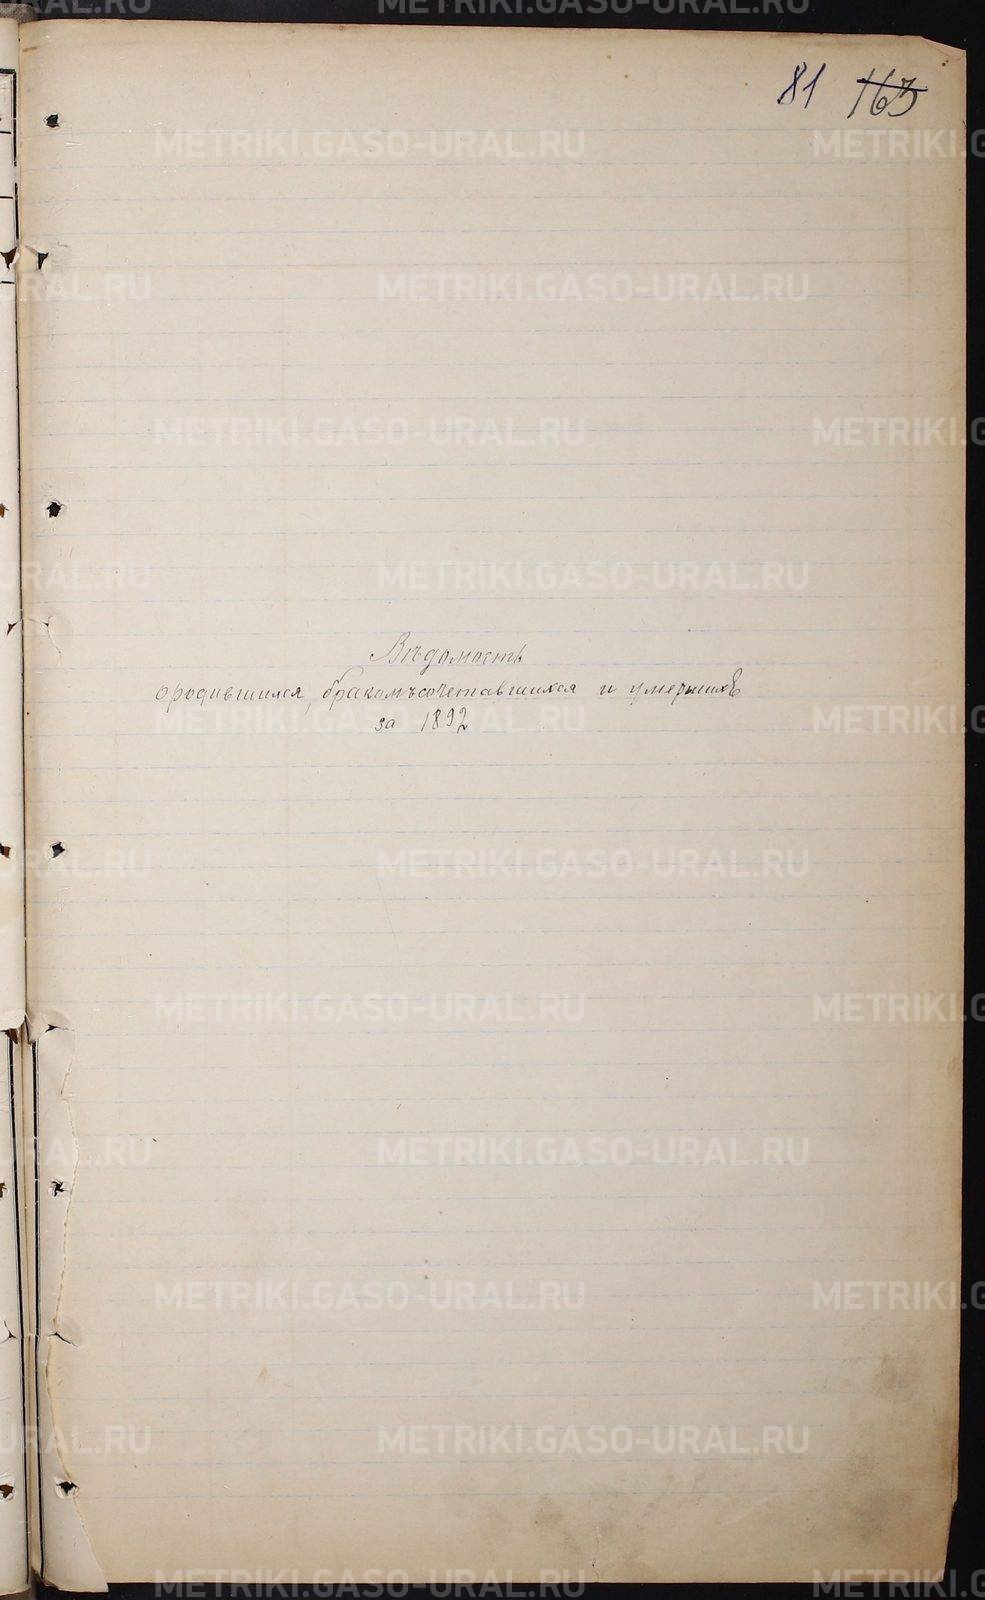 81 163
Вѣдомость
о родившихся, бракомъсочетавшихся и умершихъ
за 1892
METRIKI.GASO-URAL.RU